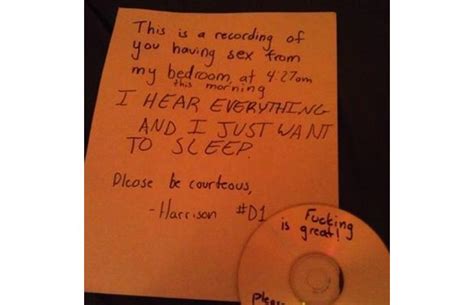 This is a recording of
you having sex from
my bedroom, at 4:27am
this morning
I HEAR EVERYTHING
AND I JUST WANT
TO SLEEP.
Please be courteous,
- Harrison #D1
Fucking
is great!